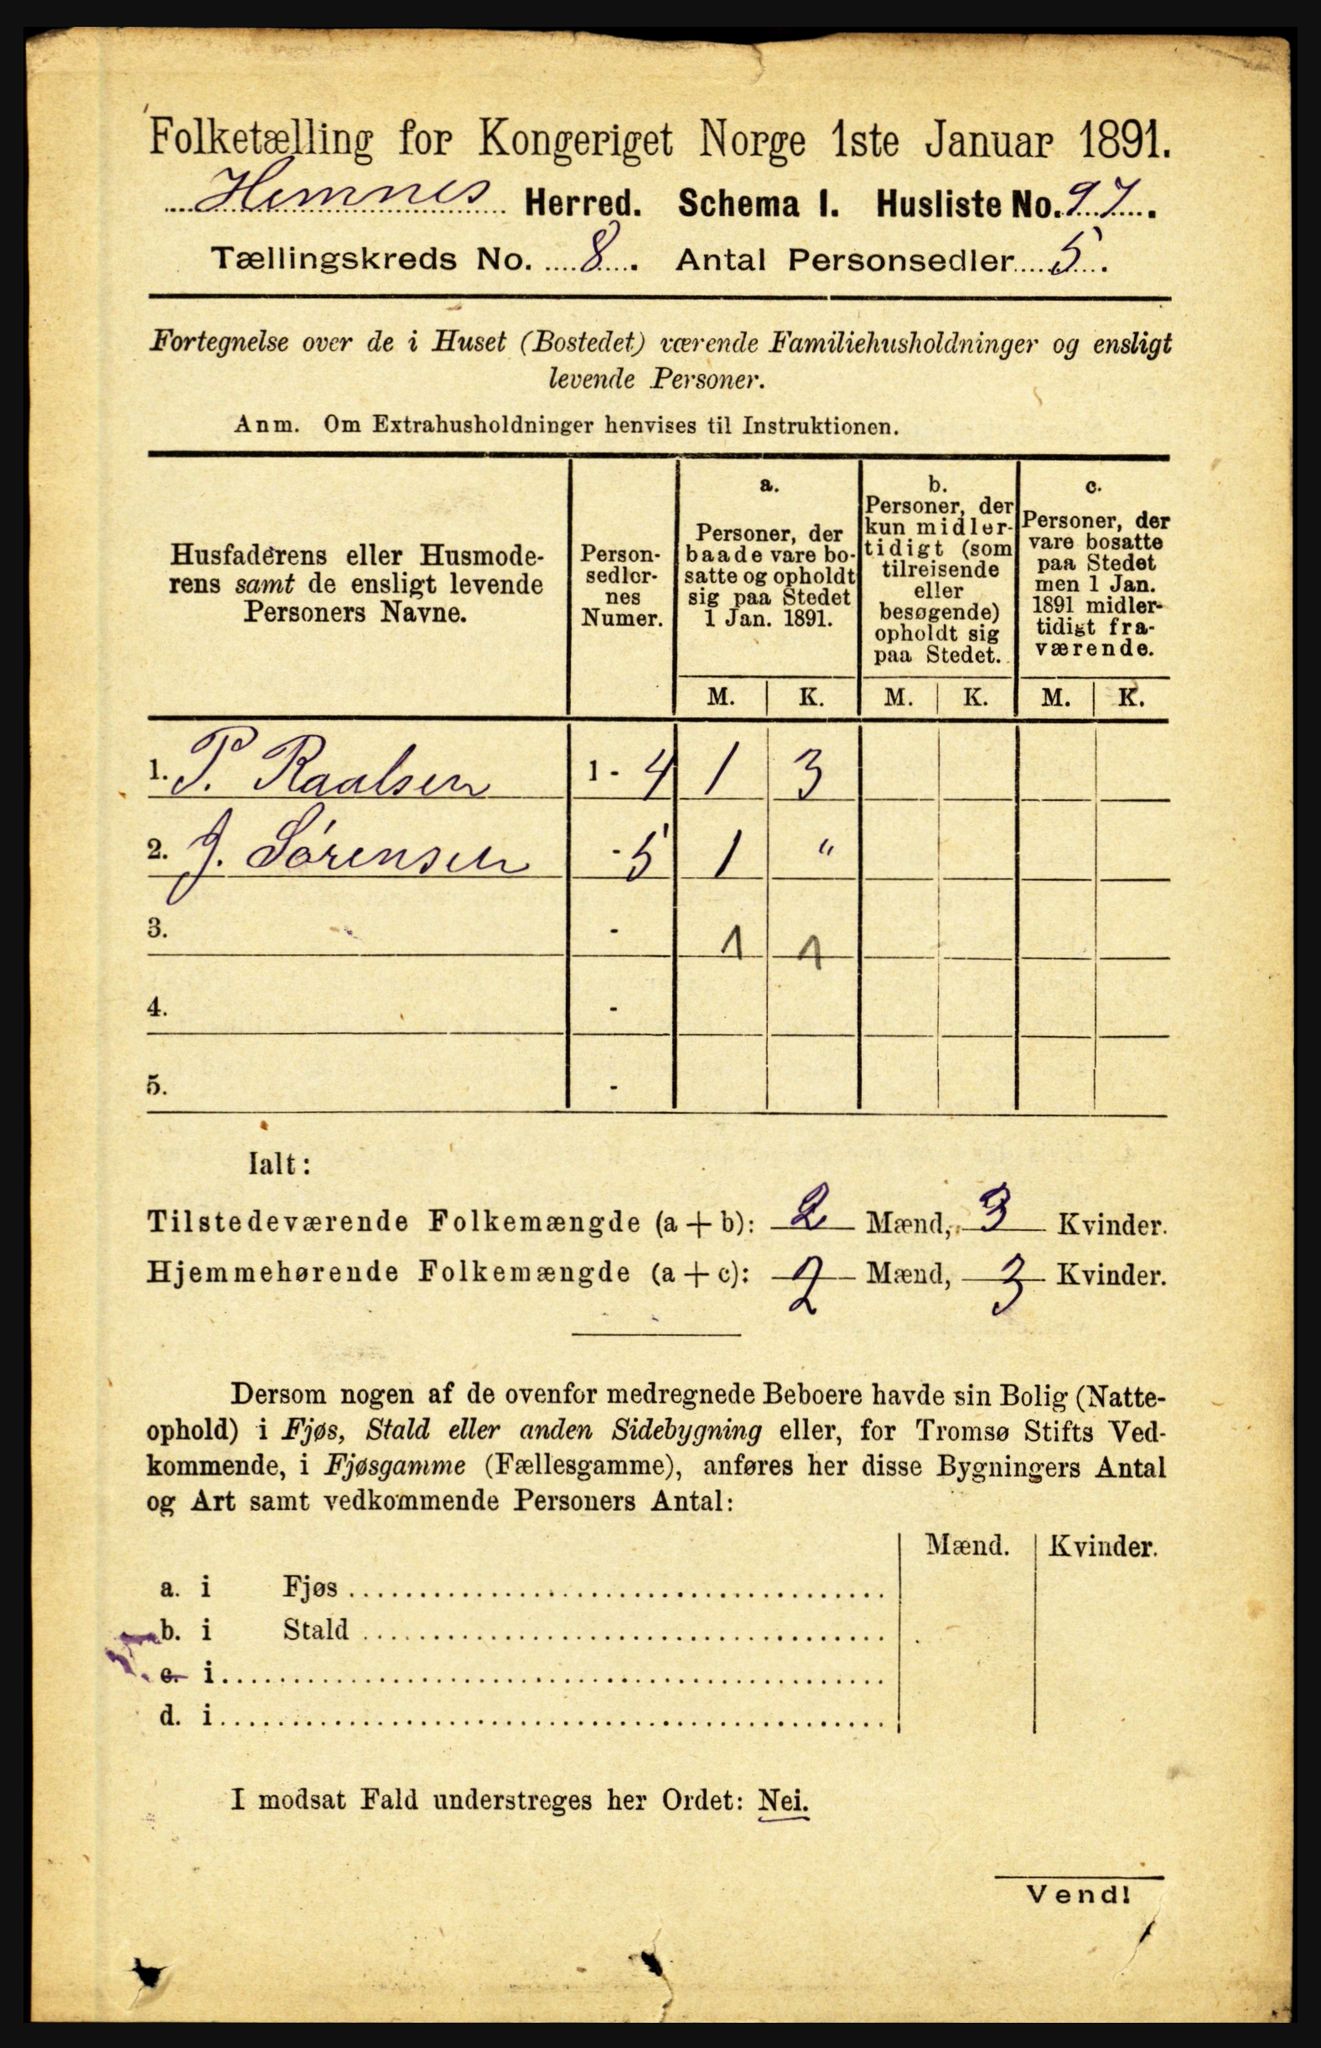 Folketælling for Kongeriget Norge 1ste Januar 1891.
Hemnes Herred. Schema I. Husliste No. 97.
Tællingskreds No. 8. Antal Personsedler 5.
Fortegnelse over de i Huset (Bostedet) værende Familiehusholdninger og ensligt
levende Personer.
Anm. Om Extrahusholdninger henvises til Instruktionen.
Husfaderens eller Husmode-
rens samt de ensligt levende
Personers Navne.
Person-
sedler-
nes
Numer.
a.
Personer, der
baade vare bo-
satte og opholdt
sig paa Stedet
1 Jan. 1891.
b.
Personer, der
kun midler-
tidigt (som
tilreisende
eller
besøgende)
opholdt sig
paa Stedet.
c.
Personer, der
vare bosatte
paa Stedet
men 1 Jan.
1891 midler-
tidigt fra-
værende.
M. K. M. K. M. K.
1. P. Raalsen 1 - 4 1 3
2. J. Sörensen - 5 1 "
3. - 1 1
4. -
5. -
Ialt:
Tilstedeværende Folkemængde (a + b): 2 Mænd, 3 Kvinder.
Hjemmehørende Folkemængde (a + c): 2 Mænd, 3 Kvinder.
Dersom nogen af de ovenfor medregnede Beboere havde sin Bolig (Natte-
ophold) i Fjøs, Stald eller anden Sidebygning eller, for Tromsø Stifts Ved-
kommende, i Fjøsgamme (Fællesgamme), anføres her disse Bygningers Antal
og Art samt vedkommende Personers Antal:
Mænd. Kvinder.
a. i Fjøs
b. i Stald
c. i
d. i
I modsat Fald understreges her Ordet: Nei.
Vend!